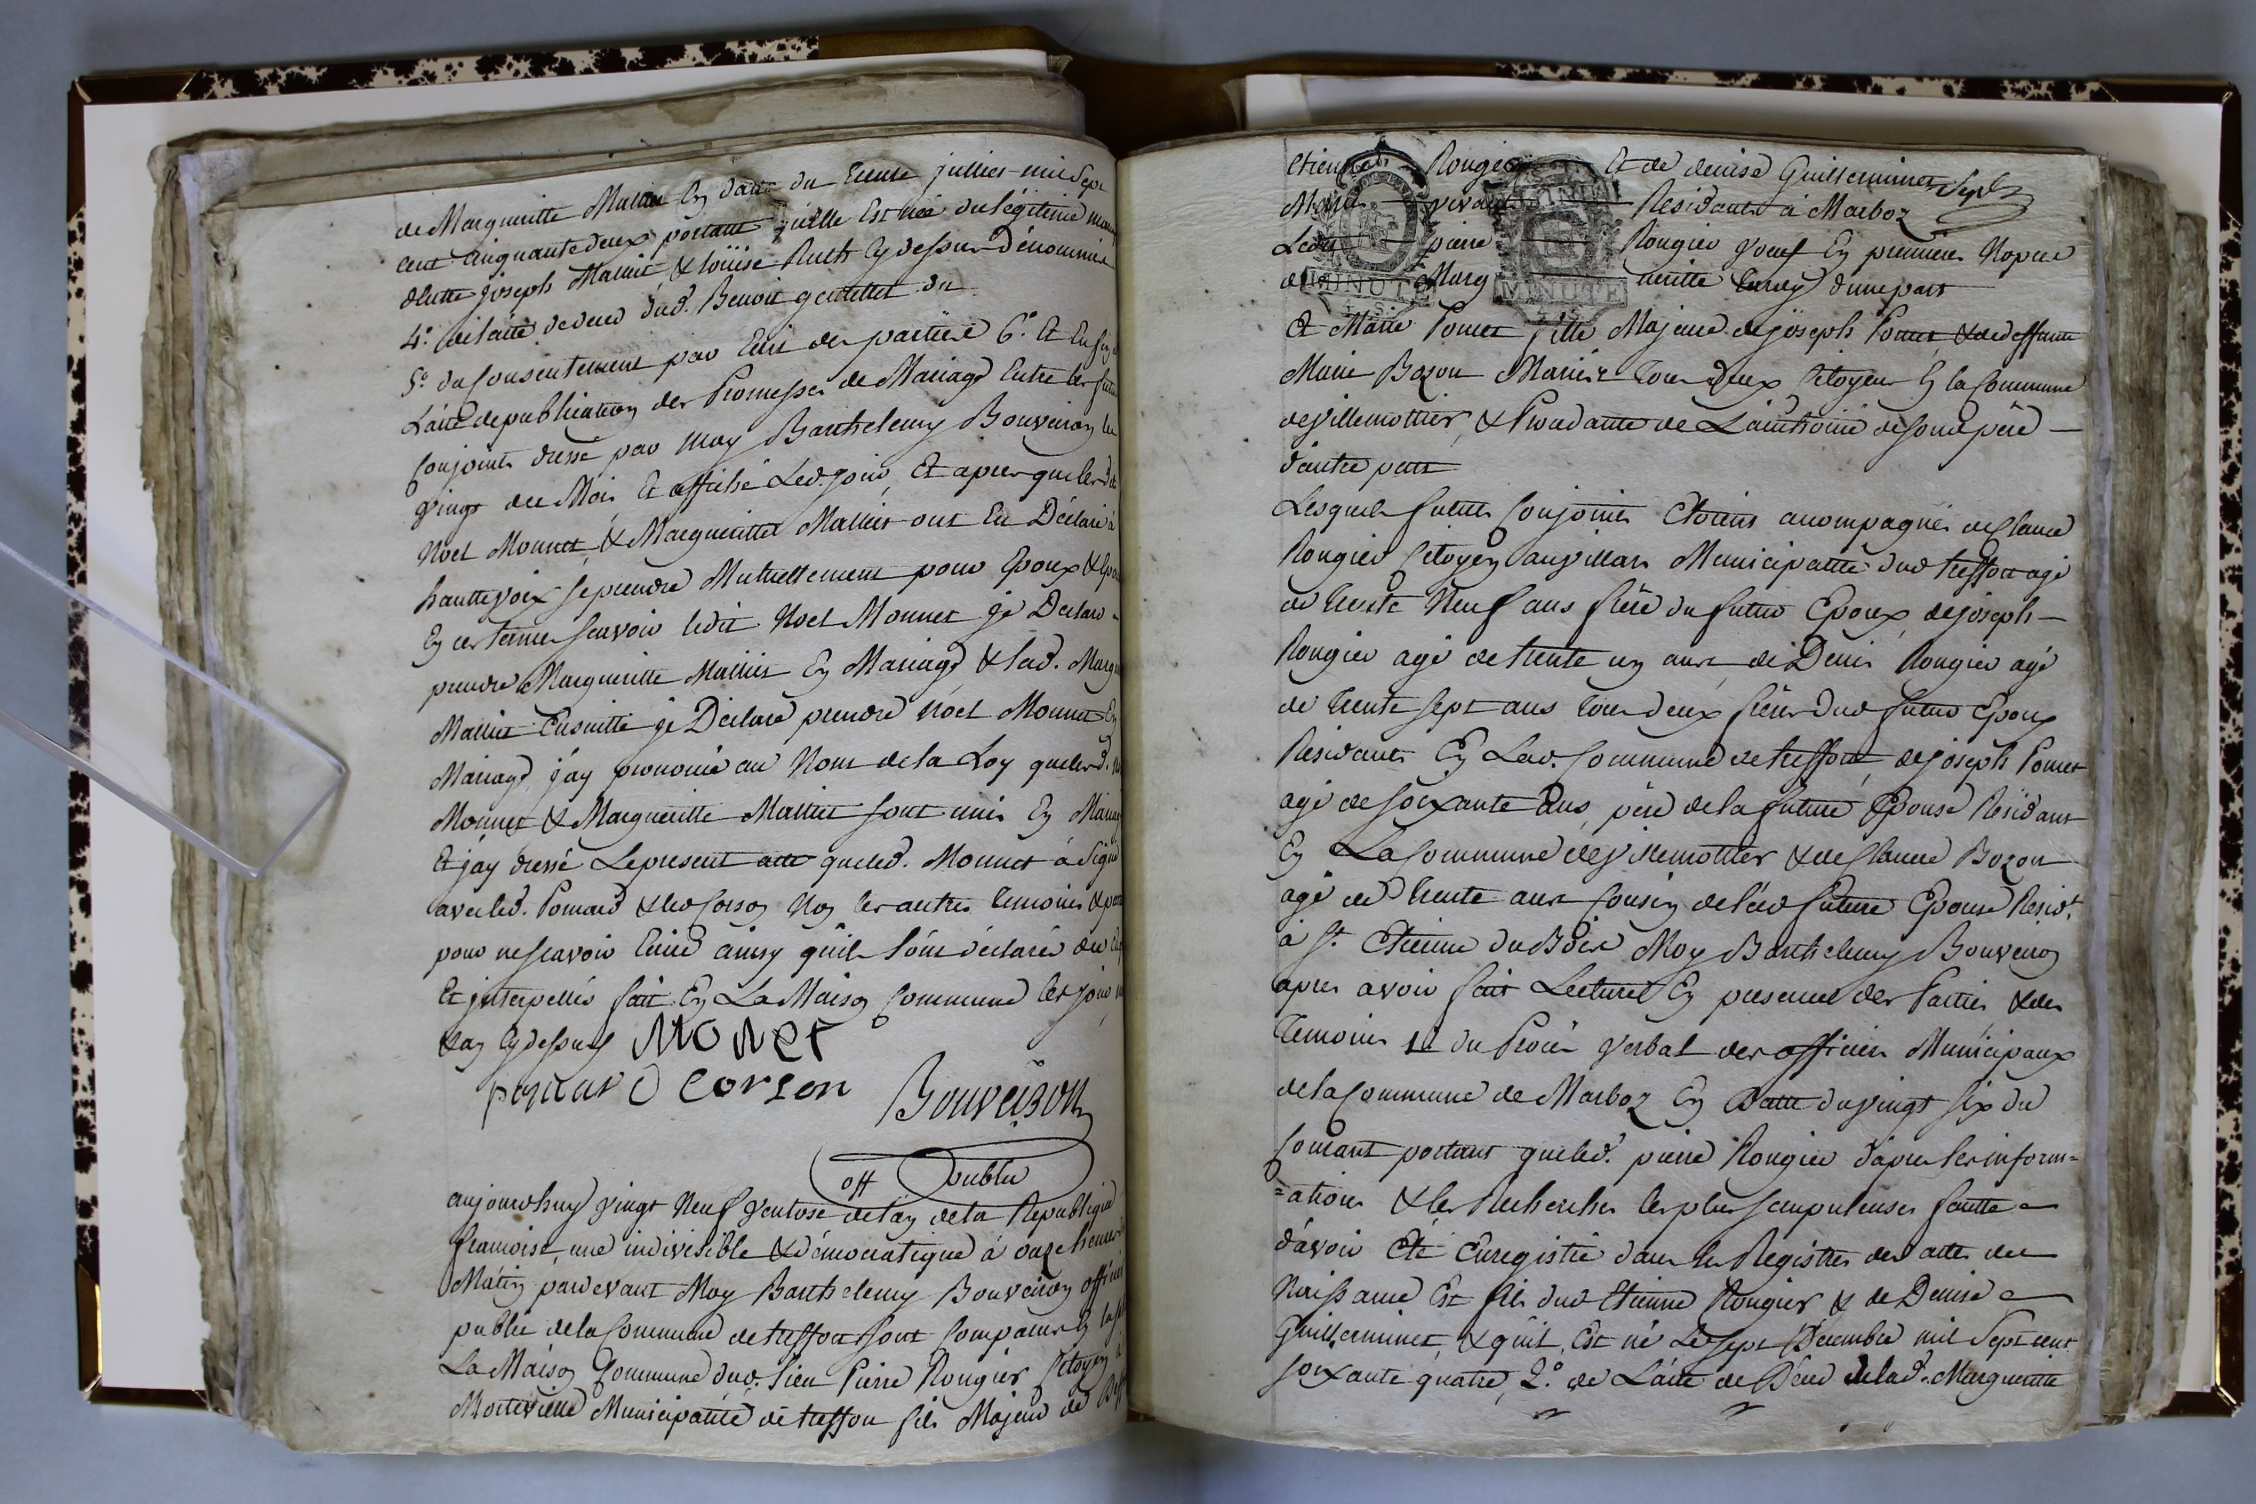 de Margueritte Mallin En datte du trente juillier mil Sept
cent Cinquante deux portant qu'elle Est née du légitime
dentre joseph Mallin & loüise Ruth Cy dessus Dénommés
4° de laite de deces dud. Benoit genillet du
5° du Consentement par Ecrit des parties 6° Et Enfin
L'aite de publication des Promesses de Mariage Entre les futur
Conjoints dressé par moy Barthelemy Bouveiron le
vingt dee Mois Et affiché Led. jour, Et apres que lesd.
Noel Monnet, & Margueritte Mallin ont Eu Déclaré à
hautte voix se prendre Mutuellement pour Epoux &
En ces termes scavoir ledit Noel Monnet je Declare
prendre Margueritte Mallin En Mariage & lad. Marg
Mallin Ensuitte je Déclare prendre Noel Monnet En
Mariage, j'ay prononcé au Nom de la Loy que lesd.
Monnet & Margueritte Mallin sont unis En Mariage
Et j'ay dressé Le present acte que led. Monnet à Signé
avec led. Ponard & led Corson Non les autres temoins &
pour ne scavoir Ecrire ainsy qu'ils l'ont déclarés de
Et jnterpellés fait En La Maison Commune les jour
& an Cy dessus MONET
ponard corson Bouveiron
off public
aujourdhuy vingt Neuf Ventose de l'an de la Republique
francoise, une indivisible & démocratique à onze heures
Matin pardevant Moy Barthelemy Bouveiron officier
public de la Commune de treffort sont Comparus En la
La Maison Commune dud. lieu Pierre Rougier Citoyen à
Municipalité de treffort fils Majeur de
Etienne Rougier Et de denise Guilleminet
vivants Residants à Marboz
pierre Rougier veuf En premiere Nopce
de Marg ueritte d'une part
Et Marie Pomet fille Majeure de joseph Pomet & de deffunte
Marie Bozon Mariés tous deux Citoyens En la Commune
de villemottier, & Procedante de L'authorité de sond père
d'autre part
Lesquels futurs Conjoints Etoients acompagnés de Claude
Rougier Citoyen au villars Municipalité dud treffort agé
de trente Neuf ans frère du futur Epoux, de joseph
Rougier agé de trente un ans, de Denis Rougier agé
de trente sept ans tous deux frères dud futur Epoux
Residants En Lad. Commune de treffort, de joseph Pomet
agé de soixante ans, père de la future Epouse Residant
En La Commune de villemottier & de Claude Bozon
agé de trente ans Cousin de lad future Epouse Resid.t
à St. Etienne du Bois Moy Barthelemy Bouveiron
apres avoir fait Lecture En presence des Parties & des
temoins 1° du Procès verbal des officiers Municipaux
de la Commune de Marboz En Datte du vingt six du
Courant portant que led. pierre Rougier d'apres les inform=
=ations & les Recherches les plus scrupuleuses faitte
d'avoir Eté Enregistré dans les Registres des attes de
Naissance Est fils dud Etienne Rougier & de Denise
Guilleminet, & qu'il Est né Le sept Décembre mil Sept cent
soixante quatre, 2° de L'aite de Déce de lad. Margueritte